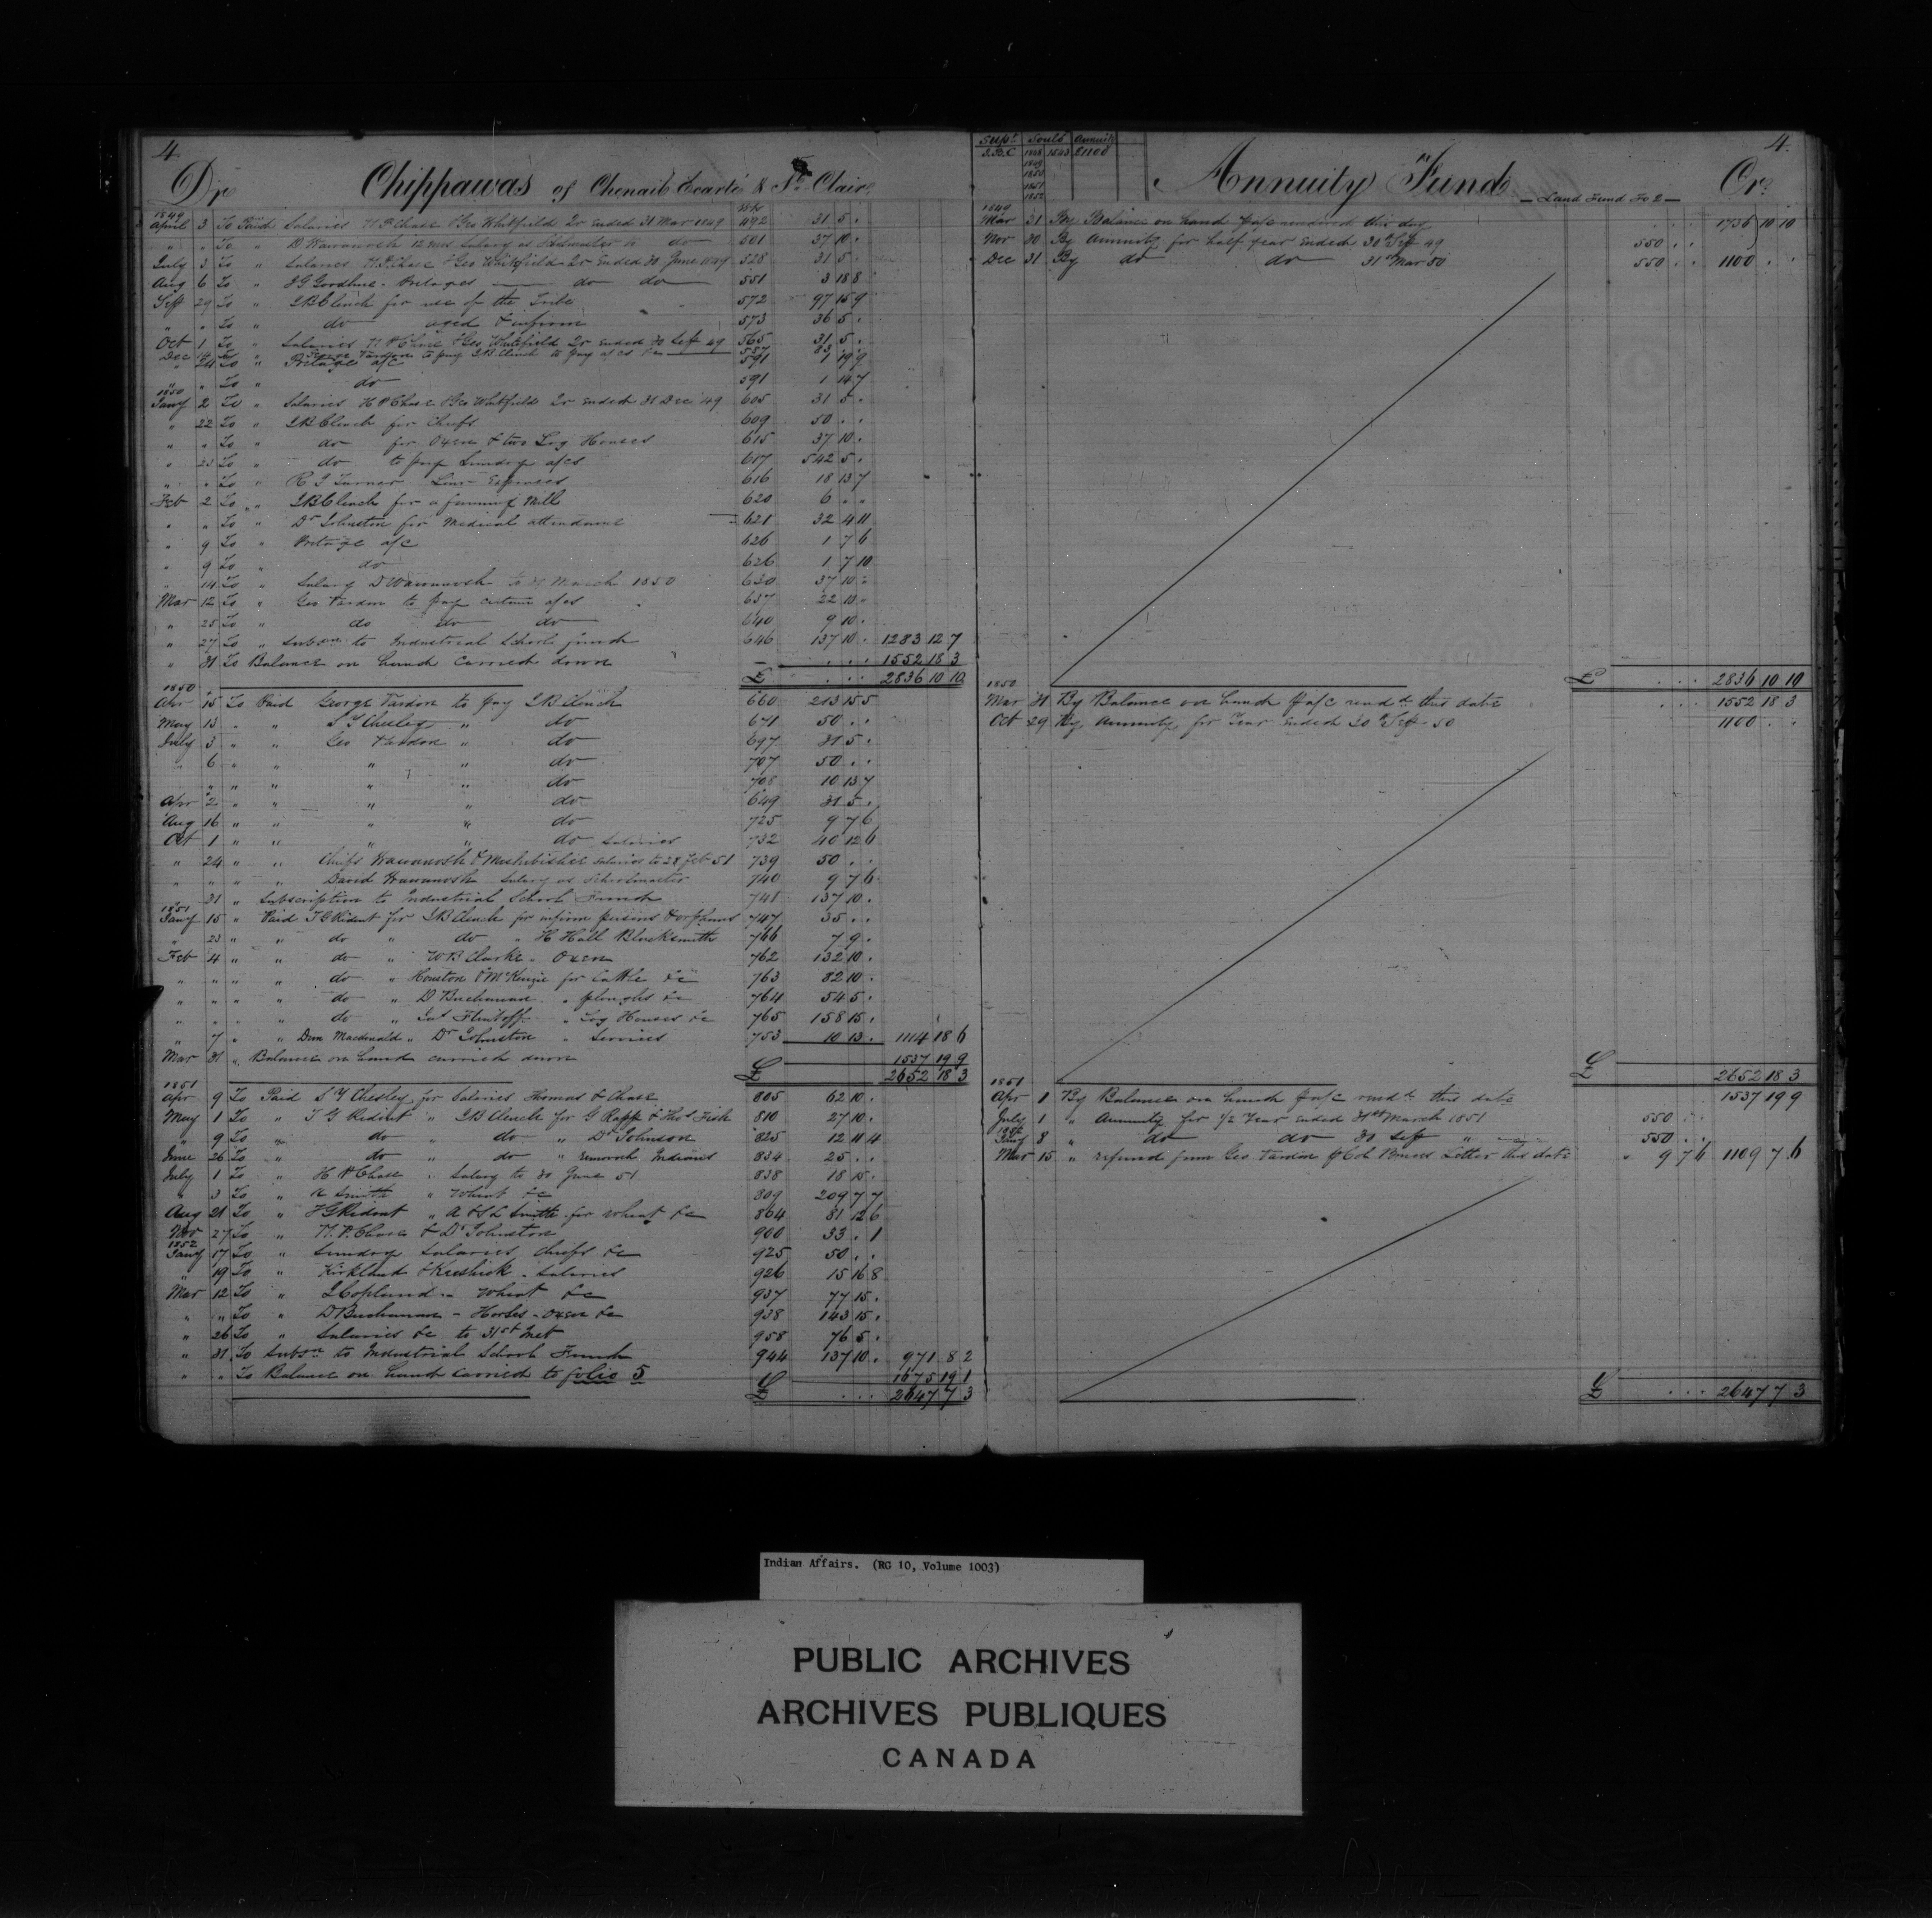 4
Dr Chippawas of Chenail Ecarté & St Clair
1849
April 3 To Paid Salaries H P Chase & Geo Whitfield Qr Ended 31 Mar 1849 492 31 5 .
" " To " D Wawanosh 12 mos Salary as Schoolmaster to do 501 37 10 .
July 3 To " Salaries H P Chase & Geo Whitfield Qr Ended 30 June 1849 528 31 5 .
Aug 6 To " J G Goodhue - Postages do do 551 3 18 8
Sept 29 To " J B Clench for use of the Tribe 572 97 15 9
" " To " do aged & infirm 573 36 5 .
Oct 1 To " Salaries H P Chase & Geo Whitfield Qr Ended 30 Sept 49 565 31 5 .
Dec 14 To " George Vardon to pay J B Clench to pay a/cs &c 587 83
" 24 To " Postage a/c 591 1 19 9
" " To " do 591 1 14 7
1850
Jany 2 To " Salaries H P Chase & Geo Whitfield Qr Ended 31 Dec '49 605 31 5 .
" 22 To " J B Clench for Chiefs 609 50 . .
" " To " do for Oxen & two Log Houses 615 37 10 .
" 23 To " do to pay Sundry a/cs 617 542 5 .
" " To " R J Turner Expenses 616 18 13 7
Feb 2 To " J B Clench for a fanning Mill 620 6 . .
" " To " Dr Johnston for Medical attendance 621 32 4 11
" 9 To " Postage a/c 626 1 7 6
" 9 To " do 626 1 7 10
" 14 To " Salary D Wawanosh to 31 March 1850 630 37 10 .
Mar 12 To " Geo Vardon to pay certain a/cs 637 22 13 .
" 25 To " do do do 640 9 10 .
" 27 To " Subson to Industrial School fund 646 137 10 . 1283 12 7
" 31 To Balance on hand carried down . . . 1552 18 3
£ . . . 2836 10 10
1850
Apr 15 To Paid George Vardon to pay J B Clench 660 213 15 5
May 13 " " S Y Chesley " do 671 50 . .
July 3 " " Geo Vardon " do 697 31 5 .
" 6 " " " " do 707 50 . .
" " " " " " do 708 10 13 7
Apr 2 " " " " do 649 31 5 .
Aug 16 " " " " do 725 9 7 6
Oct 1 " " " " do Salaries 732 40 12 6
" 24 " " Chiefs Wawanosh & Salaries to 28 Feb 51 739 50 . .
" " " " David Wawanosh Salary as Schoolmaster 740 9 7 6
" 31 " Subscription to Industrial School Fund 741 137 10 .
1851
Jany 15 " Paid T G Ridout for J B Clench for infirm persons & orphans 747 35 . .
" 23 " " do " do " H Hall Blacksmith 766 7 9 .
Feb 4 " " do " W B Clarke " Oxen 762 132 10 .
" " " " do " Houston & McKenzie for Cattle &c 763 82 10 .
" " " " do " D Buchanan " ploughs &c 764 54 5 .
" " " " do " Flintoff " Log Houses &c 765 158 15 .
" 7 " " Dun Macdonald " Dr Johnston " Services 753 10 13 . 1114 18 6
Mar 31 " Balance on hand carried down 1537 19 9
£ 2652 18 3
1851
Apr 9 To Paid S Y Chesley for Salaries Thomas & Chase 805 62 10 .
May 1 To " T G Ridout " J B Clench for G Rapp & Thos Fish 810 27 10 .
" 9 To " do " do " Dr Johnson 825 12 11 4
June 26 To " do " do " removal Indians 834 25 . .
July 1 To " H P Chase " Salary to 30 June 51 838 18 15 .
" 3 To " A Smith " Wheat &c 809 209 7 7
Aug 21 To " T G Ridout " A & S L Smith for wheat &c 864 81 12 6
Nov 27 To " H. P. Chase & Dr Johnston 900 33 . 1
1852
Jany 17 To " Sundry Salaries, Chiefs &c 925 50 . .
" 19 To " Kirkland & Keeshick . Salaries 926 15 16 8
Mar 12 To " J Copland - Wheat &c 937 77 15 .
" " To " D Buchanan - Horses - Oxen &c 938 143 15 .
" 26 To " Salaries &c to 31st Inst 958 76 5 .
" 31 To Subson to Industrial School Fund 944 137 10 . 971 8 2
" " To Balance on hand carried to folio 5 1675 19 1
£ . . . 2647 7 3
Supt Souls Annuity
J.B.C 1848 1543 £1100
1849
1850
1851
1852
4.
Annuity Fund Cr
— Land Fund Fo 2 —
1849
Mar 31 By Balance on hand p a/c rendered this day . . 1736 10 10
Nov 30 By Annuity for half year ended 30th Sept 49 550 . .
Dec 31 By do do 31st Mar 50 550 . . 1100 . .
£ . . . 2836 10 10
1850
Mar 31 By Balance on hand p a/c rendd this date . . . 1552 18 3
Oct 29 By Annuity for Year Ended 30th Sept 50 1100 . .
£ 2652 18 3
1851
Apr 1 By Balance on hand p a/c rendd this date 1537 19 9
July 1 " Annuity for 1/2 Year Ended 31st March 1851 550 . .
1852
Jany 8 " do do 31 Sept " 550 . .
Mar 15 " refund from Geo Vardon p Col Bruces Letter this date " 9 7 6 1109 7 6
£ . . . 2647 7 3
Indian Affairs. (RG 10, Volume 1003)
PUBLIC ARCHIVES
ARCHIVES PUBLIQUES
CANADA